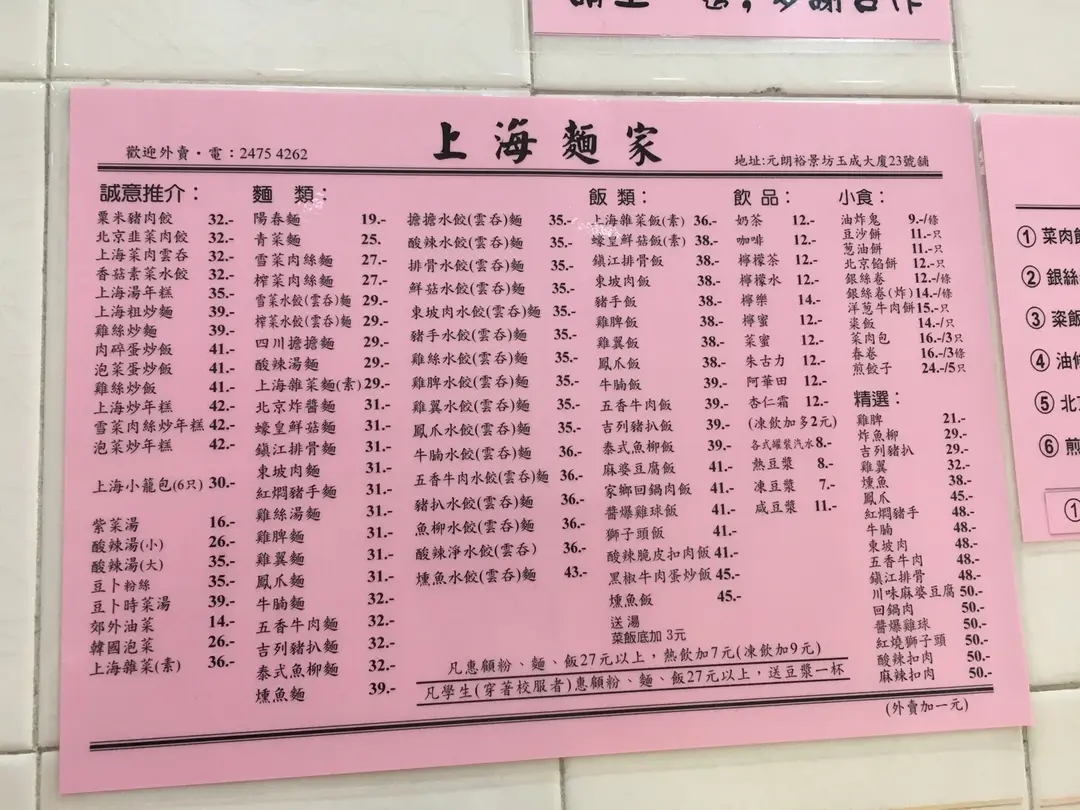 歡迎外賣・電：2475 4262
上海麵家
地址:元朗裕景坊玉成大廈23號舖
誠意推介：
粟米豬肉餃 32.-
北京韭菜肉餃 32.-
上海菜肉雲吞 32.-
香菇素菜水餃 32.-
上海湯年糕 35.-
上海粗炒麵 39.-
雞絲炒麵 39.-
肉碎蛋炒飯 41.-
泡菜蛋炒飯 41.-
雞絲炒飯 41.-
上海炒年糕 42.-
雪菜肉絲炒年糕 42.-
泡菜炒年糕 42.-
上海小籠包(6只) 30.-
紫菜湯 16.-
酸辣湯(小) 26.-
酸辣湯(大) 35.-
豆卜粉絲 35.-
豆卜時菜湯 39.-
郊外油菜 14.-
韓國泡菜 26.-
上海雜菜(素) 36.-
麵 類：
陽春麵 19.-
青菜麵 25.
雪菜肉絲麵 27.-
榨菜肉絲麵 27.-
雪菜水餃(雲吞)麵 29.-
榨菜水餃(雲吞)麵 29.-
四川擔擔麵 29.-
酸辣湯麵 29.-
上海雜菜麵(素) 29.-
北京炸醬麵 31.-
蠔皇鮮菇麵 31.-
鎮江排骨麵 31.-
東坡肉麵 31.-
紅燜豬手麵 31.-
雞絲湯麵 31.-
雞脾麵 31.-
雞翼麵 31.-
鳳爪麵 31.-
牛腩麵 32.-
五香牛肉麵 32.-
吉列豬扒麵 32.-
泰式魚柳麵 32.-
燻魚麵 39.-
擔擔水餃(雲吞)麵 35.-
酸辣水餃(雲吞)麵 35.-
排骨水餃(雲吞)麵 35.-
鮮菇水餃(雲吞)麵 35.-
東坡肉水餃(雲吞)麵 35.-
豬手水餃(雲吞)麵 35.-
雞絲水餃(雲吞)麵 35.-
雞脾水餃(雲吞)麵 35.-
雞翼水餃(雲吞)麵 35.-
鳳爪水餃(雲吞)麵 35.-
牛腩水餃(雲吞)麵 36.-
五香牛肉水餃(雲吞)麵 36.-
豬扒水餃(雲吞)麵 36.-
魚柳水餃(雲吞)麵 36.-
酸辣淨水餃(雲吞) 36.-
燻魚水餃(雲吞)麵 43.-
飯 類：
上海雜菜飯(素) 36.-
蠔皇鮮菇飯(素) 38.-
鎮江排骨飯 38.-
東坡肉飯 38.-
豬手飯 38.-
雞脾飯 38.-
雞翼飯 38.-
鳳爪飯 38.-
牛腩飯 39.-
五香牛肉飯 39.-
吉列豬扒飯 39.-
泰式魚柳飯 39.-
麻婆豆腐飯 41.-
家鄉回鍋肉飯 41.-
醬爆雞球飯 41.-
獅子頭飯 41.-
酸辣脆皮扣肉飯 41.-
黑椒牛肉蛋炒飯 45.-
燻魚飯 45.-
送 湯
菜飯底加 3元
飲 品：
奶茶 12.-
咖啡 12.-
檸檬茶 12.-
檸檬水 12.-
檸樂 14.-
檸蜜 12.-
菜蜜 12.-
朱古力 12.-
阿華田 12.-
杏仁霜 12.-
(凍飲加多2元)
各式罐裝汽水 8.-
熱豆漿 8.-
凍豆漿 7.-
咸豆漿 11.-
小食：
油炸鬼 9.-/條
豆沙餅 11.-只
蔥油餅 11.-只
北京餡餅 12.-只
銀絲卷 12.-/條
銀絲卷(炸) 14.-/條
洋蔥牛肉餅 15.-只
粢飯 14.-/只
菜肉包 16.-/3只
春卷 16.-/3條
煎餃子 24.-/5只
精選：
雞脾 21.-
炸魚柳 29.-
吉列豬扒 29.-
雞翼 32.-
燻魚 38.-
鳳爪 45.-
紅燜豬手 48.-
牛腩 48.-
東坡肉 48.-
五香牛肉 48.-
鎮江排骨 48.-
川味麻婆豆腐 50.-
回鍋肉 50.-
醬爆雞球 50.-
紅燒獅子頭 50.-
酸辣扣肉 50.-
麻辣扣肉 50.-
凡惠顧粉、麵、飯27元以上，熱飲加7元(凍飲加9元)
凡學生(穿著校服者)惠顧粉、麵、飯27元以上，送豆漿一杯
(外賣加一元)
多謝合作
① 菜肉
② 銀絲
③ 粢飯
④ 油
⑤ 北
⑥ 煎
①